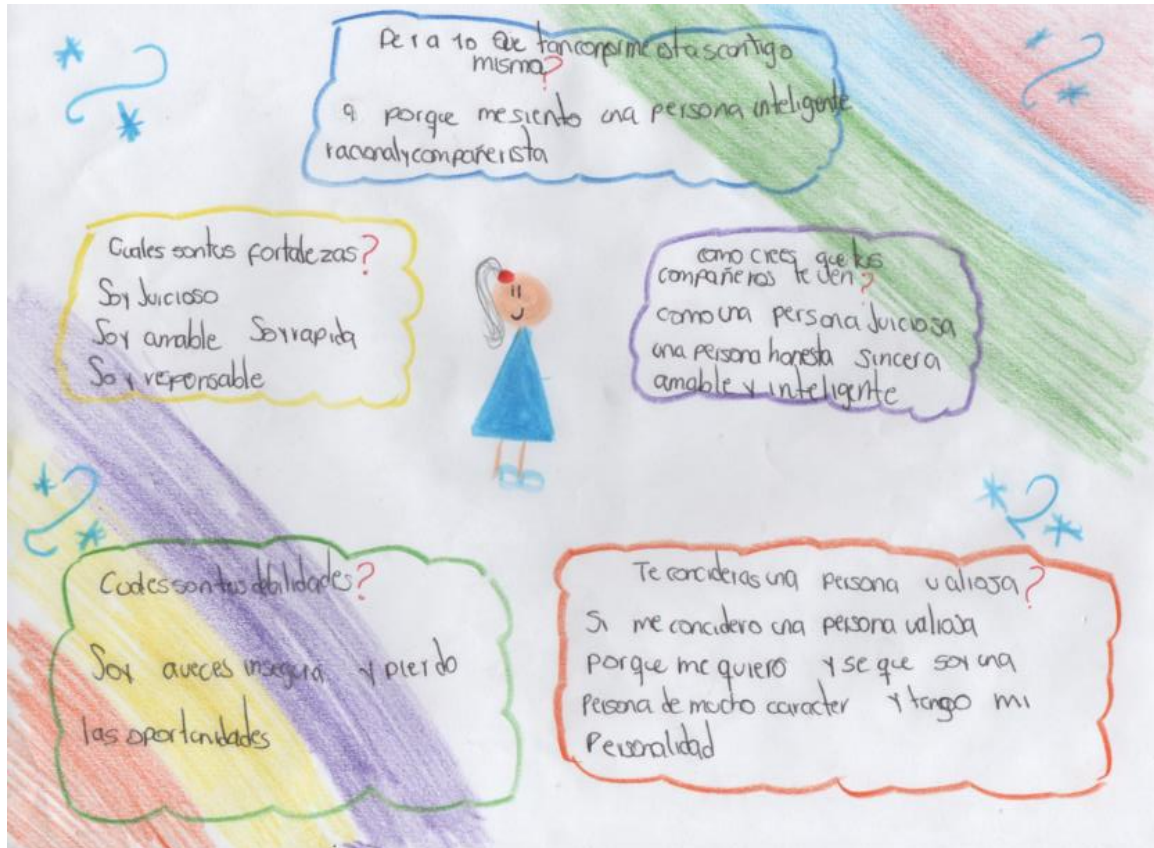 De 1 a 10 Que tan conforme estas contigo
misma?
9 porque me siento una persona inteligente
racional y compañerista
Cuales son tus fortalezas?
Soy Juicioso
Soy amable Soy rapida
Soy reponsable
como crees que tus
compañeros te ven?
como una persona Juiciosa
una persona honesta sincera
amable y inteligente
Cuales son tus debilidades?
Soy aveces insegura y pierdo
las oportunidades
Te concideras una persona valiosa?
Si me concidero una persona valiosa
porque me quiero y se que soy una
Persona de mucho caracter y tengo mi
Personalidad